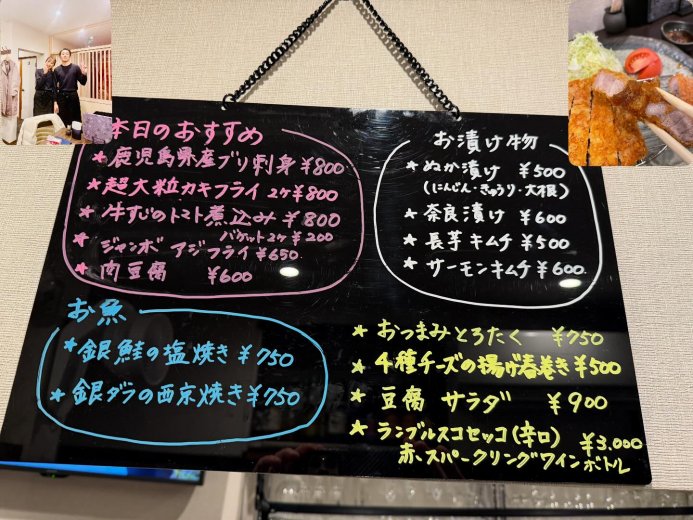 本日のおすすめ
★鹿児島県産ブリ刺身 ¥800
★超大粒カキフライ 2ヶ¥800
★牛すじのトマト煮込み ¥800
バケット2ヶ ¥200
★ジャンボ アジフライ ¥650
★肉豆腐 ¥600
お漬け物
★ぬか漬け ¥500
(にんじん・きゅうり・大根)
★奈良漬け ¥600
★長芋キムチ ¥500
★サーモンキムチ ¥600
お魚
★銀鮭の塩焼き ¥750
★銀ダラの西京焼き ¥750
★おつまみとろたく ¥750
★4種チーズの揚げ春巻き ¥500
★豆腐 サラダ ¥900
★ランブルスコセッコ(辛口) ¥3.000
赤、スパークリングワインボトル